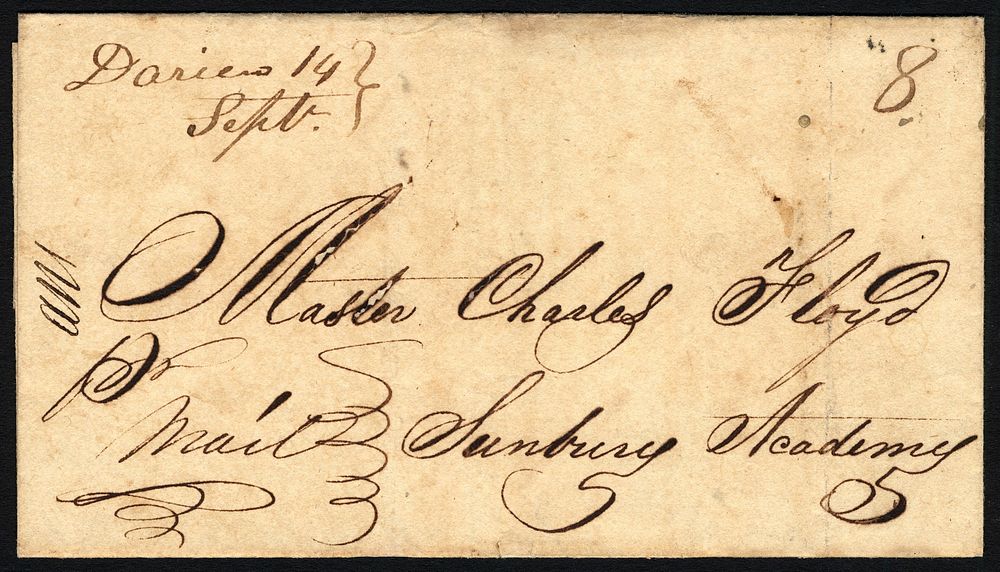 Darien 14
Septr.
8
Master Charles Floyd
Pr
Mail Sunbury Academy